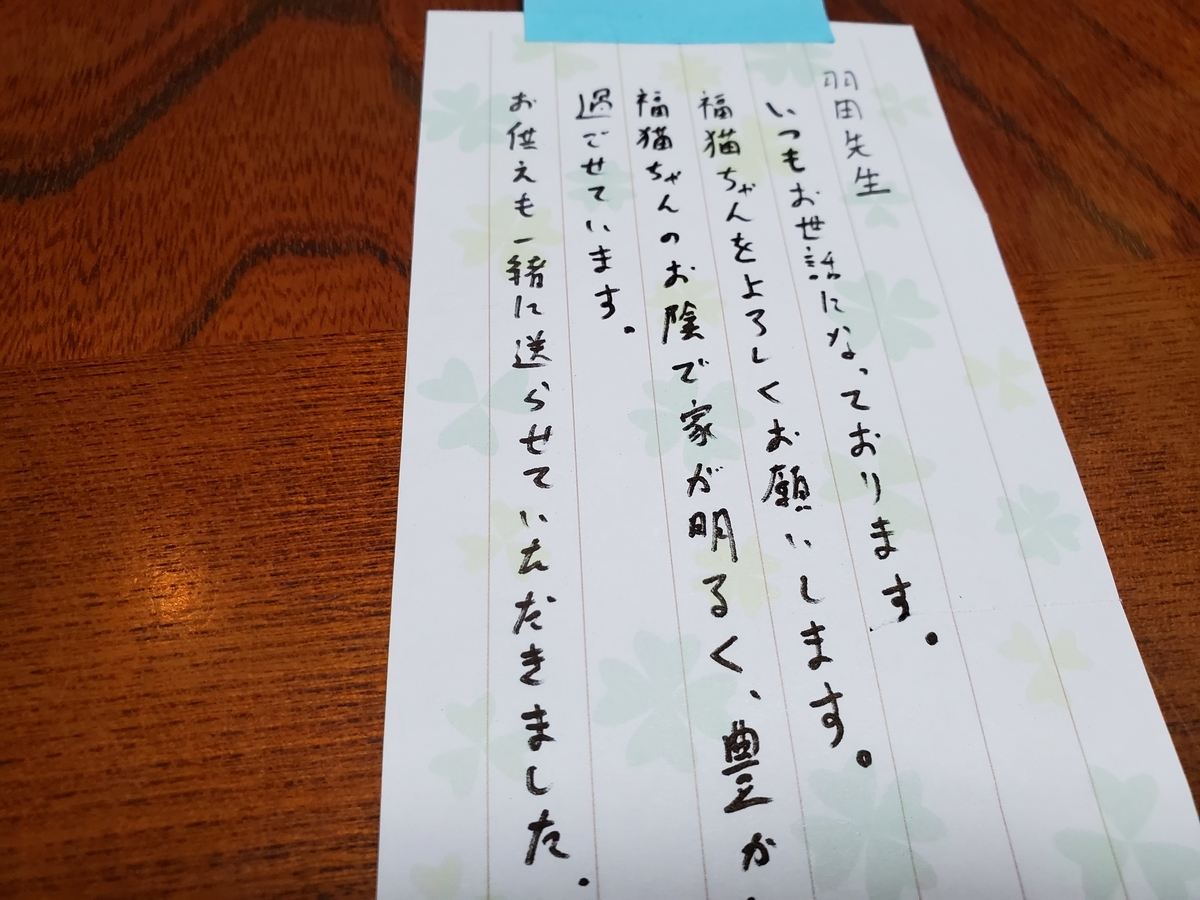 羽田先生
いつもお世話になっております。
福猫ちゃんをよろしくお願いします。
福猫ちゃんのお陰で家が明るく、豊か
過ごせています。
お供えも一緒に送らせていただきました.